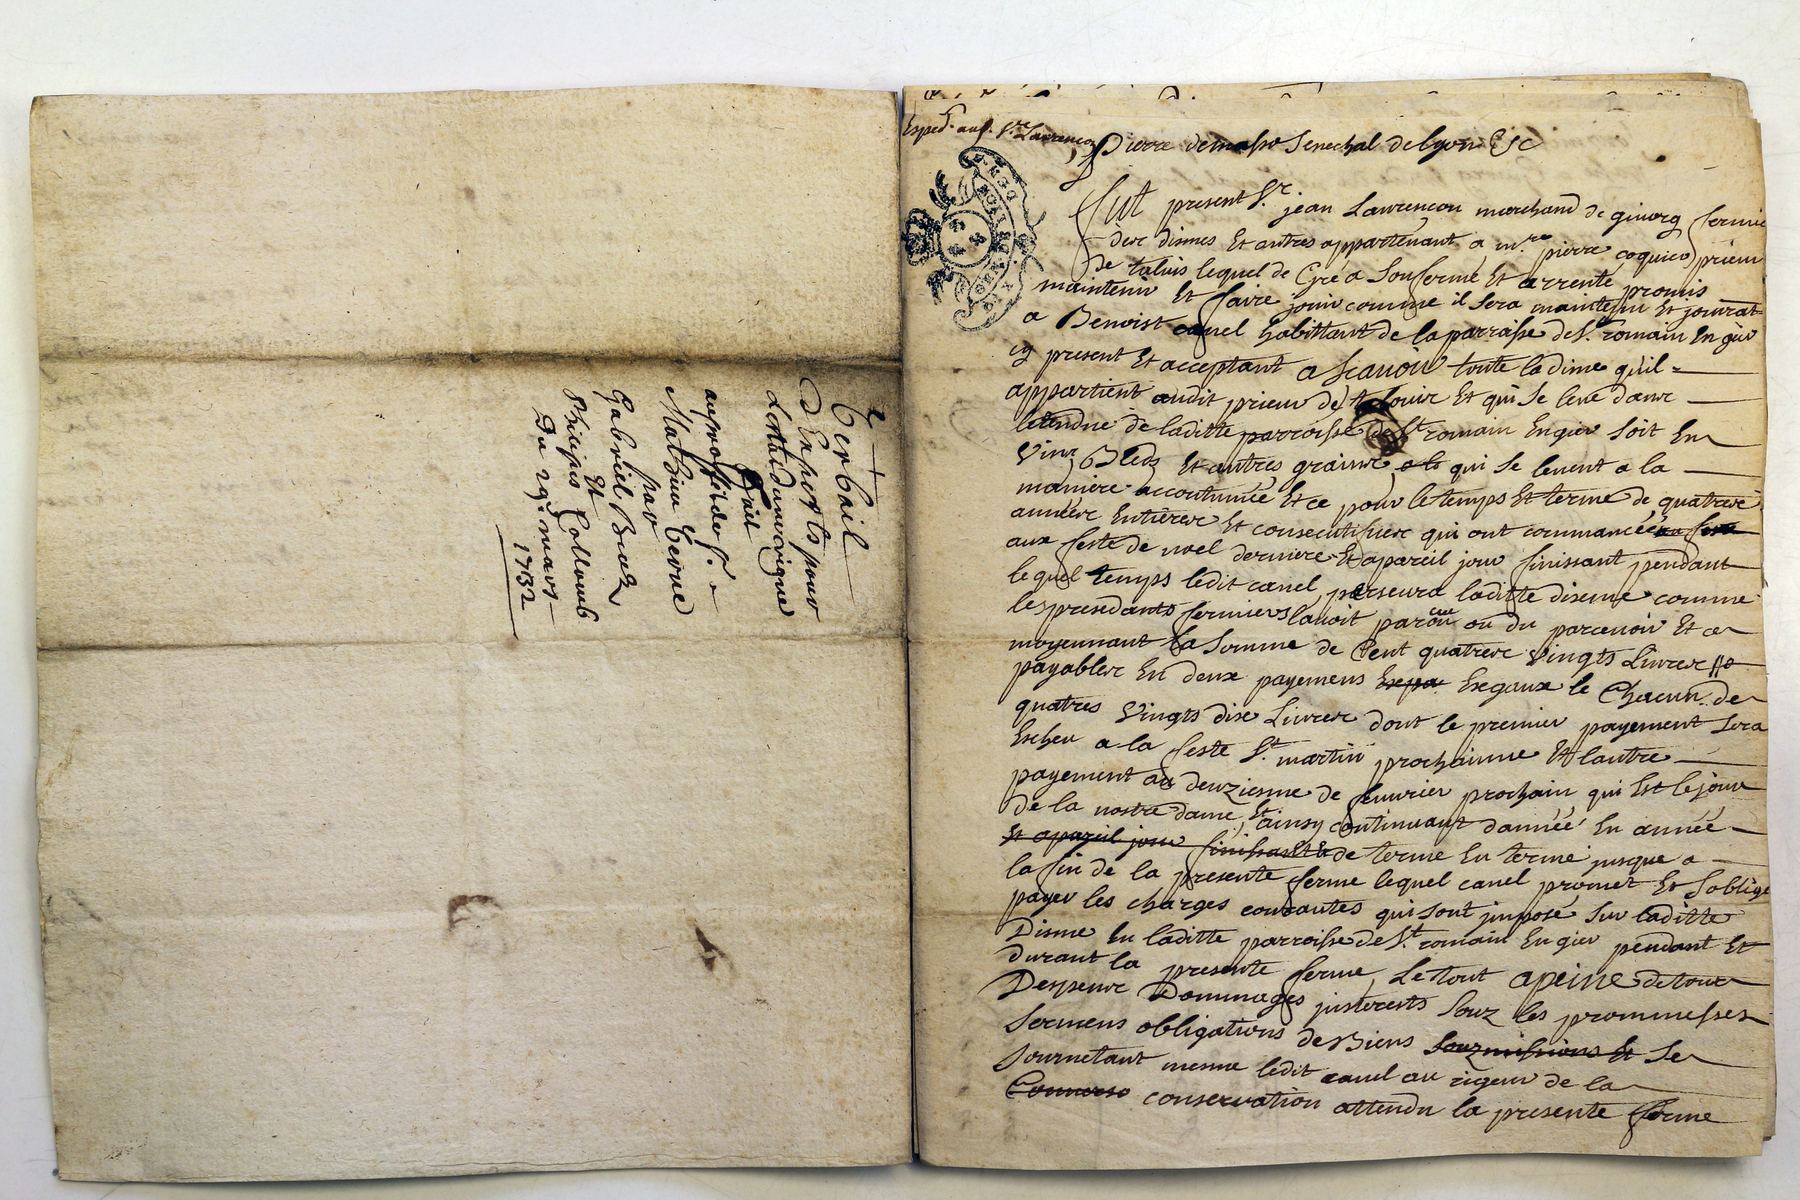 verbail
d'Exports pour
Lestat du vin vigne
fait
au proffit de Sr.
Mathieu Terme
par
Gabriel Biez
Et
Philipes Collomb
Du 29e mars
1732
Exped. au Sr. Laurencon
Pierre de masso Senechal de lyon &c
fut present Sr. jean Laurencon marchand de givorg fermie
des dismes Et autres appartenant a mre. pierre coquier prieur
de taluis lequel de Gré a Soufermé Et arrenté promis
maintenir Et faire jouir comme il Sera maintenu Et jouirat
a Benoist canel habittant de la parraisse de St. romain En gier
cy present Et acceptant a scauoir toute la dime qu'il
appartient audit prieur de Et qui Se leue dans
letendue de laditte parroisse de St. romain En gier Soit En
Vins Bleds Et autres grains qui Se leuent a la
maniere accoutumée Et ce pour le temps Et terme de quatres
années Entieres Et consecutifues qui ont commancée
aux feste de noel derniere Et a pareil jour finissant pendant
lequel temps ledit canel perseura laditte dixme comme
les presedants fermiers lauoit parceu ou du parceuoir Et ce
moyennant la Somme de Cent quatres Vingts Livres
payables En deux payemens Exegaux le Chacun de
quatres Vingts dix Livres dont le premier payement Sera
Escheu a la feste St. martin prochainne Et lautre
payement au deuziesme de feuurier prochain qui Est le jour
de la nostre dame Et ainsy continuant d'année En année
Et apareil jour finissant Et de terme En terme jusque a
la fin de la presente ferme lequel canel promet Et Soblige
payer les charges courantes qui Sont jmposé Sur laditte
Disme En laditte parroisse de St. romain En gier pendant Et
durant la presente ferme Le tout a peine de tous
Despens Dommages jnterests Souz les prommesses
Sermens obligations de Biens Souzmissions Et Se
Soumetant mesme ledit canel au rigeur de la
conservation attendu la presente ferme